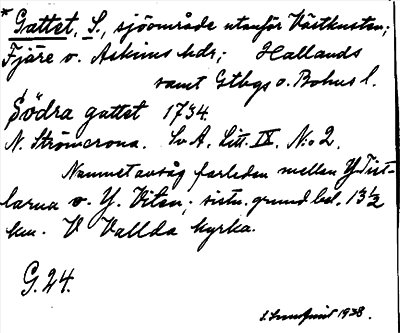 * Gattet, S., sjöområde utanför Västkusten;
Fjäre o. Askims hdr; Hallands
samt Gtbgs o. Bohus l.
Södra gattet 1734.
N. Strömcrona. Sv. A. Litt. IX. No 2.
Namnet avsåg farleden mellan Y. Tist-
larna o. Y. Viten; sistn. grund bel. 13 1/2
km. V Vallda kyrka.
G. 24.
1938.